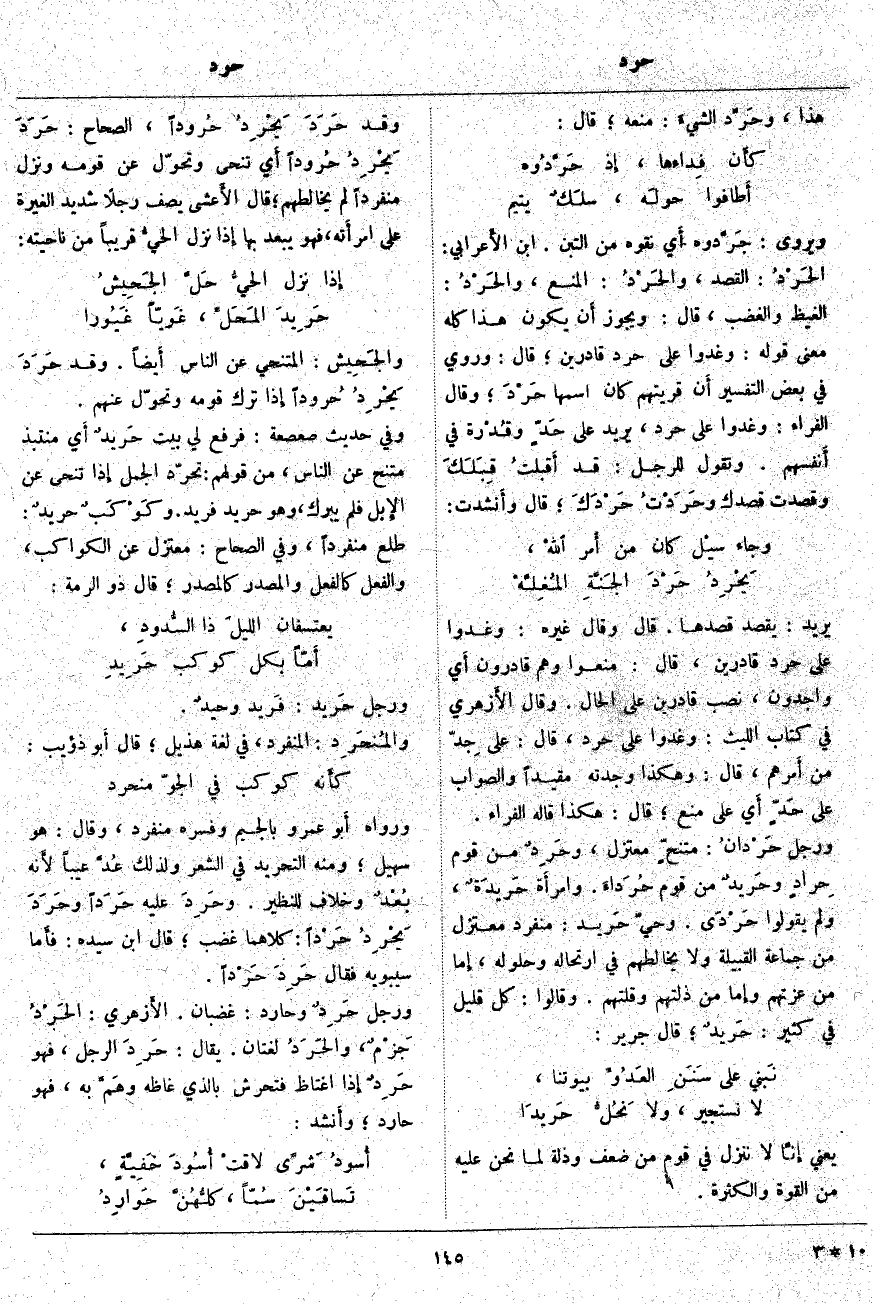 حرد
حرد
هذا ، وحَرَّد الشيءَ : منعه ؛ قال :
كأَن فِداءها ، إِذ حَرَّدُوه
أَطافوا حولَه ، سلَكٌ يتيم
ويروى : جَرَّدوه أَي نقوه من التبن . ابن الأَعرابي :
الحَرْدُ : القصد ، والحَرْدُ : المنع ، والحَرْدُ :
الغيظ والغضب ، قال : ويجوز أَن يكون هذا كله
معنى قوله : وغدوا على حرد قادرين ؛ قال : وروي
في بعض التفسير أَن قريتهم كان اسمها حَرْدَ ؛ وقال
الفراء : وغدوا على حرد ، يريد على حَدٍّ وقُدْرة في
أَنفسهم . وتقول للرجل : قد أَقبلتُ قِبَلَكَ
وقصدت قصدك وحَرَدْتُ حَرْدَكَ ؛ قال وأَنشدت :
وجاء سيْل كان من أَمر اللهْ ،
يَحْرِدُ حَرْدَ الجَنَّةِ المُغِلَّهْ
يريد : يقصد قصدها . قال وقال غيره : وغدوا
على حرد قادرين ، قال : منعوا وهم قادرون أَي
واجدون ، نصب قادرين على الحال . وقال الأَزهري
في كتاب الليث : وغدوا على حرد ، قال : على جِدّ
من أَمرهم ، قال : وهكذا وجدته مقيداً والصواب
على حَدٍّ أَي على منع ؛ قال : هكذا قاله الفراء .
ورجل حَرْدانُ : متنحٍّ معتزل ، وحَرِدٌ من قوم
حِرادٍ وحَريدٌ من قوم حُرَداءَ . وامرأَة حَريدَةٌ ،
ولم يقولوا حَرْدَى . وحيّ حَريد : منفرد معتزل
من جماعة القبيلة ولا يخالطهم في ارتحاله وحلوله ، إِما
من عزتهم وإِما من ذلتهم وقلتهم . وقالوا : كل قليل
في كثير : حَريدٌ ؛ قال جرير :
نَبني على سَنَنِ العَدُوِّ بيوتنا ،
لا نستجير ، ولا نَحُلُّ حَريدَا
يعني إِنَّا لا ننزل في قوم من ضعف وذلة لما نحن عليه
من القوة والكثرة .
وقد حَرَدَ يَحْرِدُ حُروداً ، الصحاح : حَرَدَ
يَحْرِدُ حُروداً أَي تنحى وتحوّل عن قومه ونزل
منفرداً لم يخالطهم ؛ قال الأَعشى يصف رجلًا شديد الغيرة
على امرأَته ، فهو يبعد بها إِذا نزل الحيُّ قريباً من ناحيته :
إِذا نزل الحيُّ حَلَّ الجَحِيشُ
حَرِيدَ المَحَلِّ ، غَوِيّاً غَيُورا
والجَحِيش : المتنحي عن الناس أَيضاً . وقد حَرَدَ
يَحْرِدُ حُروداً إِذا ترك قومه وتحوّل عنهم .
وفي حديث صعصعة : فرفع لي بيت حَريدٌ أَي منتبذ
متنح عن الناس ، من قولهم : تحرّد الجمل إِذا تنحى عن
الإِبل فلم يبرك ، وهو حريد فريد . وكَوْكَبٌ حريدٌ :
طلع منفرداً ، وفي الصحاح : معتزل عن الكواكب ،
والفعل كالفعل والمصدر كالمصدر ؛ قال ذو الرمة :
يعتسفان الليلَ ذا السُّدودِ ،
أَمّاً بكل كوكب حَرِيدِ
ورجل حَريد : فَريد وحيدٌ .
والمُنحَرِد : المنفرد ، في لغة هذيل ؛ قال أَبو ذؤيب :
كأَنه كوكب في الجوّ منحرد
ورواه أَبو عمرو بالجيم وفسره منفرد ، وقال : هو
سهيل ؛ ومنه التحريد في الشعر ولذلك عُدَّ عيباً لأَنه
بُعْدٌ وخلاف للنظير . وحَرِدَ عليه حَرَداً وحَرَدَ
يَحْرِدُ حَرْداً : كلاهما غضب ؛ قال ابن سيده : فأَما
سيبويه فقال حَرِدَ حَرْداً .
ورجل حَرِدٌ وحارد : غضبان . الأَزهري : الحَرْدُ
جَزْمٌ ، والحَرَدُ لغتان . يقال : حَرِدَ الرجل ، فهو
حَرِدٌ إِذا اغتاظ فتحرش بالذي غاظه وهَمَّ به ، فهو
حارد ؛ وأَنشد :
أُسودُ شَرًى لاقتْ أُسودَ خَفِيَّةٍ ،
تَساقَيْنَ سُمّاً ، كلُّهُنَّ حَوارِدُ
١٤٥
١٠ * ٣